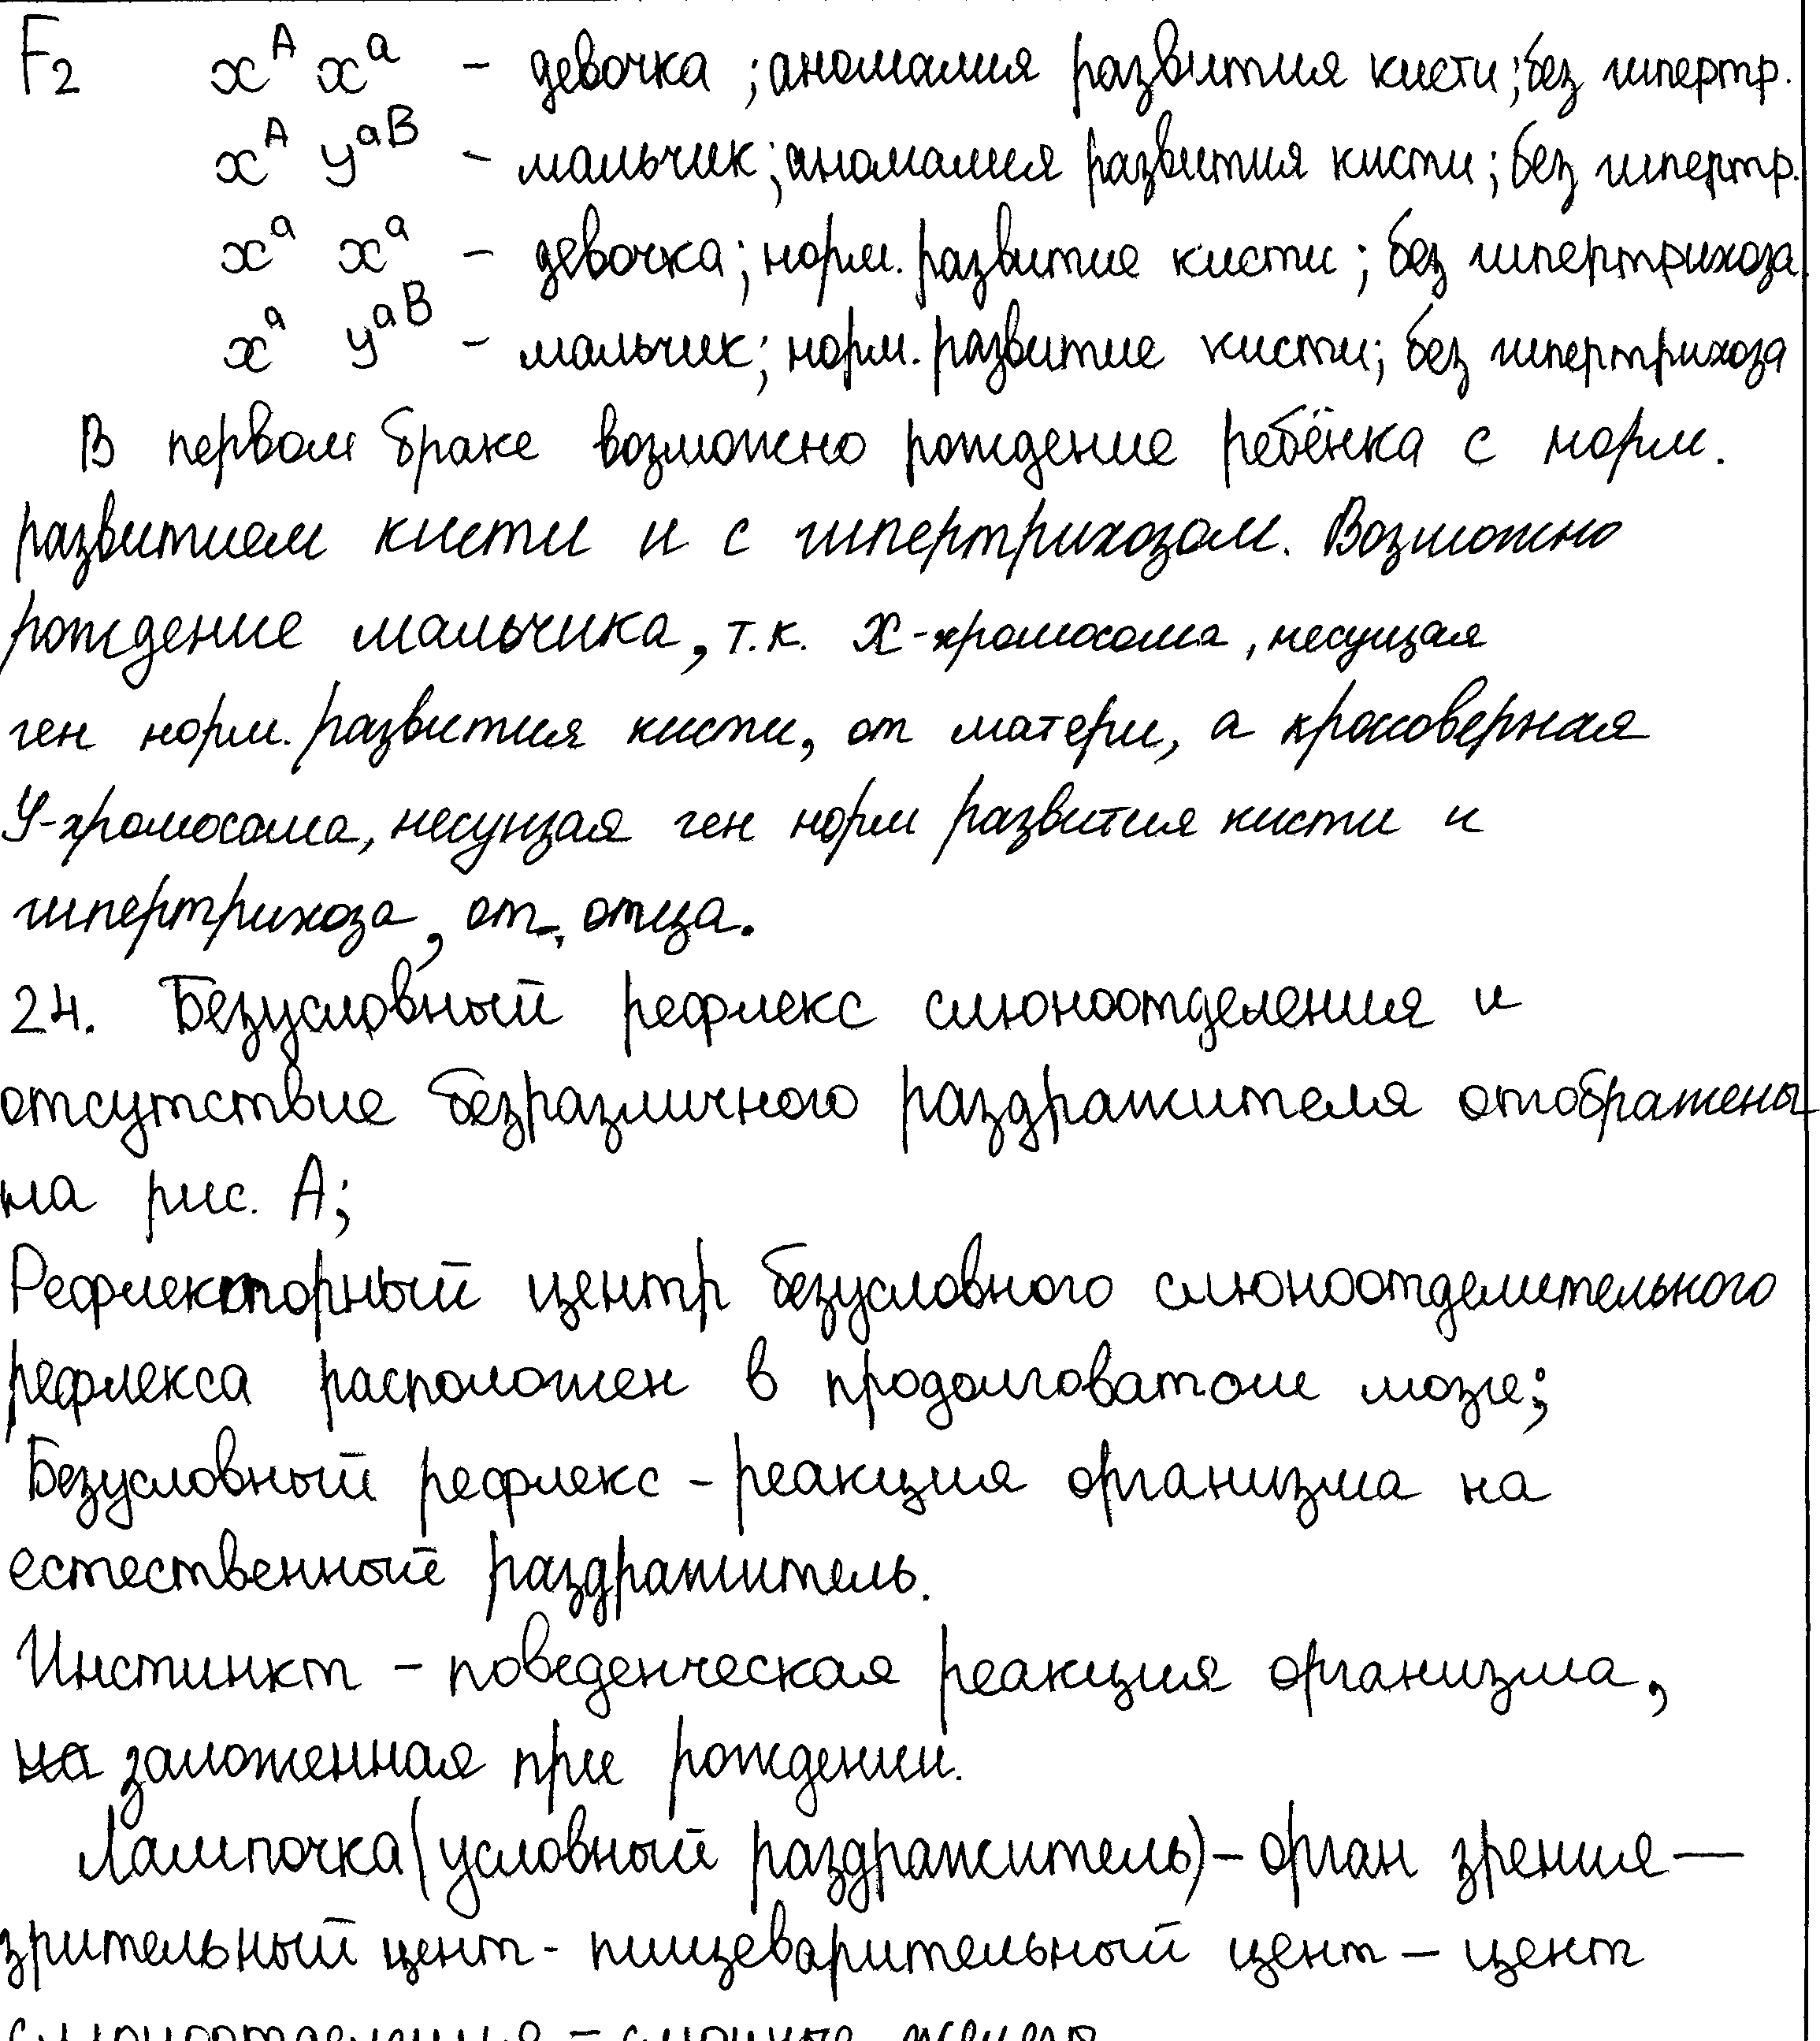 F₂ x^A x^a - девочка ; аномалия развития кисти; без гипертр.
x^A y^aB - мальчик; аномалия развития кисти; без гипертр.
x^a x^a - девочка; норм. развитие кисти; без гипертрихоза
x^a y^aB - мальчик; норм. развитие кисти; без гипертрихоза
В первом браке возможно рождение ребёнка с норм.
развитием кисти и с гипертрихозом. Возможно
рождение мальчика, т.к. X-хромосома, несущая
ген норм. развития кисти, от матери, а кроссоверная
У-хромосома, несущая ген норм развития кисти и
гипертрихоза, от отца.
24. Безусловный рефлекс слюноотделения и
отсутствие безразличного раздражителя отображены
на рис. А;
Рефлекторный центр безусловного слюноотделительного
рефлекса расположен в продолговатом мозге;
Безусловный рефлекс - реакция организма на
естественный раздражитель.
Инстинкт - поведенческая реакция организма,
на заложенная при рождении.
Лампочка (условный раздражитель) - орган зрения —
зрительный цент - пищеварительный цент - цент
слюноотделения - слюнные железы